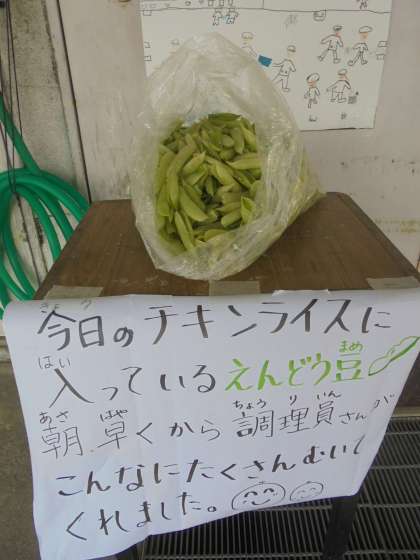 今日のチキンライスに
入っているえんどう豆
朝早くから調理員さんが
こんなにたくさんむいて
くれました。